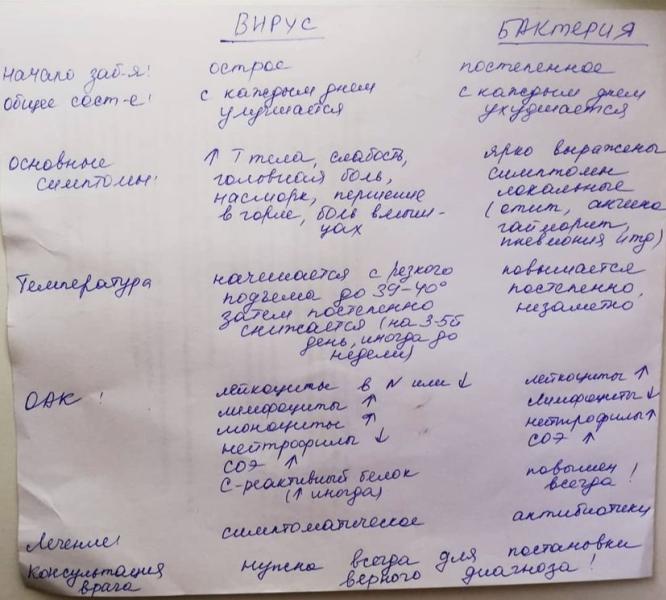 ВИРУС БАКТЕРИЯ
начало заб-я! острое постепенное
общее сост-е! с каждым днем с каждым днем
улучшается ухудшается
основные ↑ Т тела, слабость, ярко выражены
симптомы! головная боль, симптомы
насморк, першение локальные
в горле, боль в мыш- (отит, ангина
цах гайморит,
пневмония итд)
Температура начинается с резкого повышается
подъема до 39-40° постепенно,
затем постепенно незаметно
снижается (на 3-5й
день, иногда до
недели)
ОАК! лейкоциты в N или ↓ лейкоциты ↑
лимфоциты ↑ лимфоциты ↓
моноциты ↑ нейтрофилы ↑
нейтрофилы ↓ СОЭ ↑
СОЭ ↑
С-реактивный белок повышен
(↑ иногда) всегда!
Лечение! симптоматическое антибиотики
Консультация нужна всегда для постановки
врача верного диагноза!